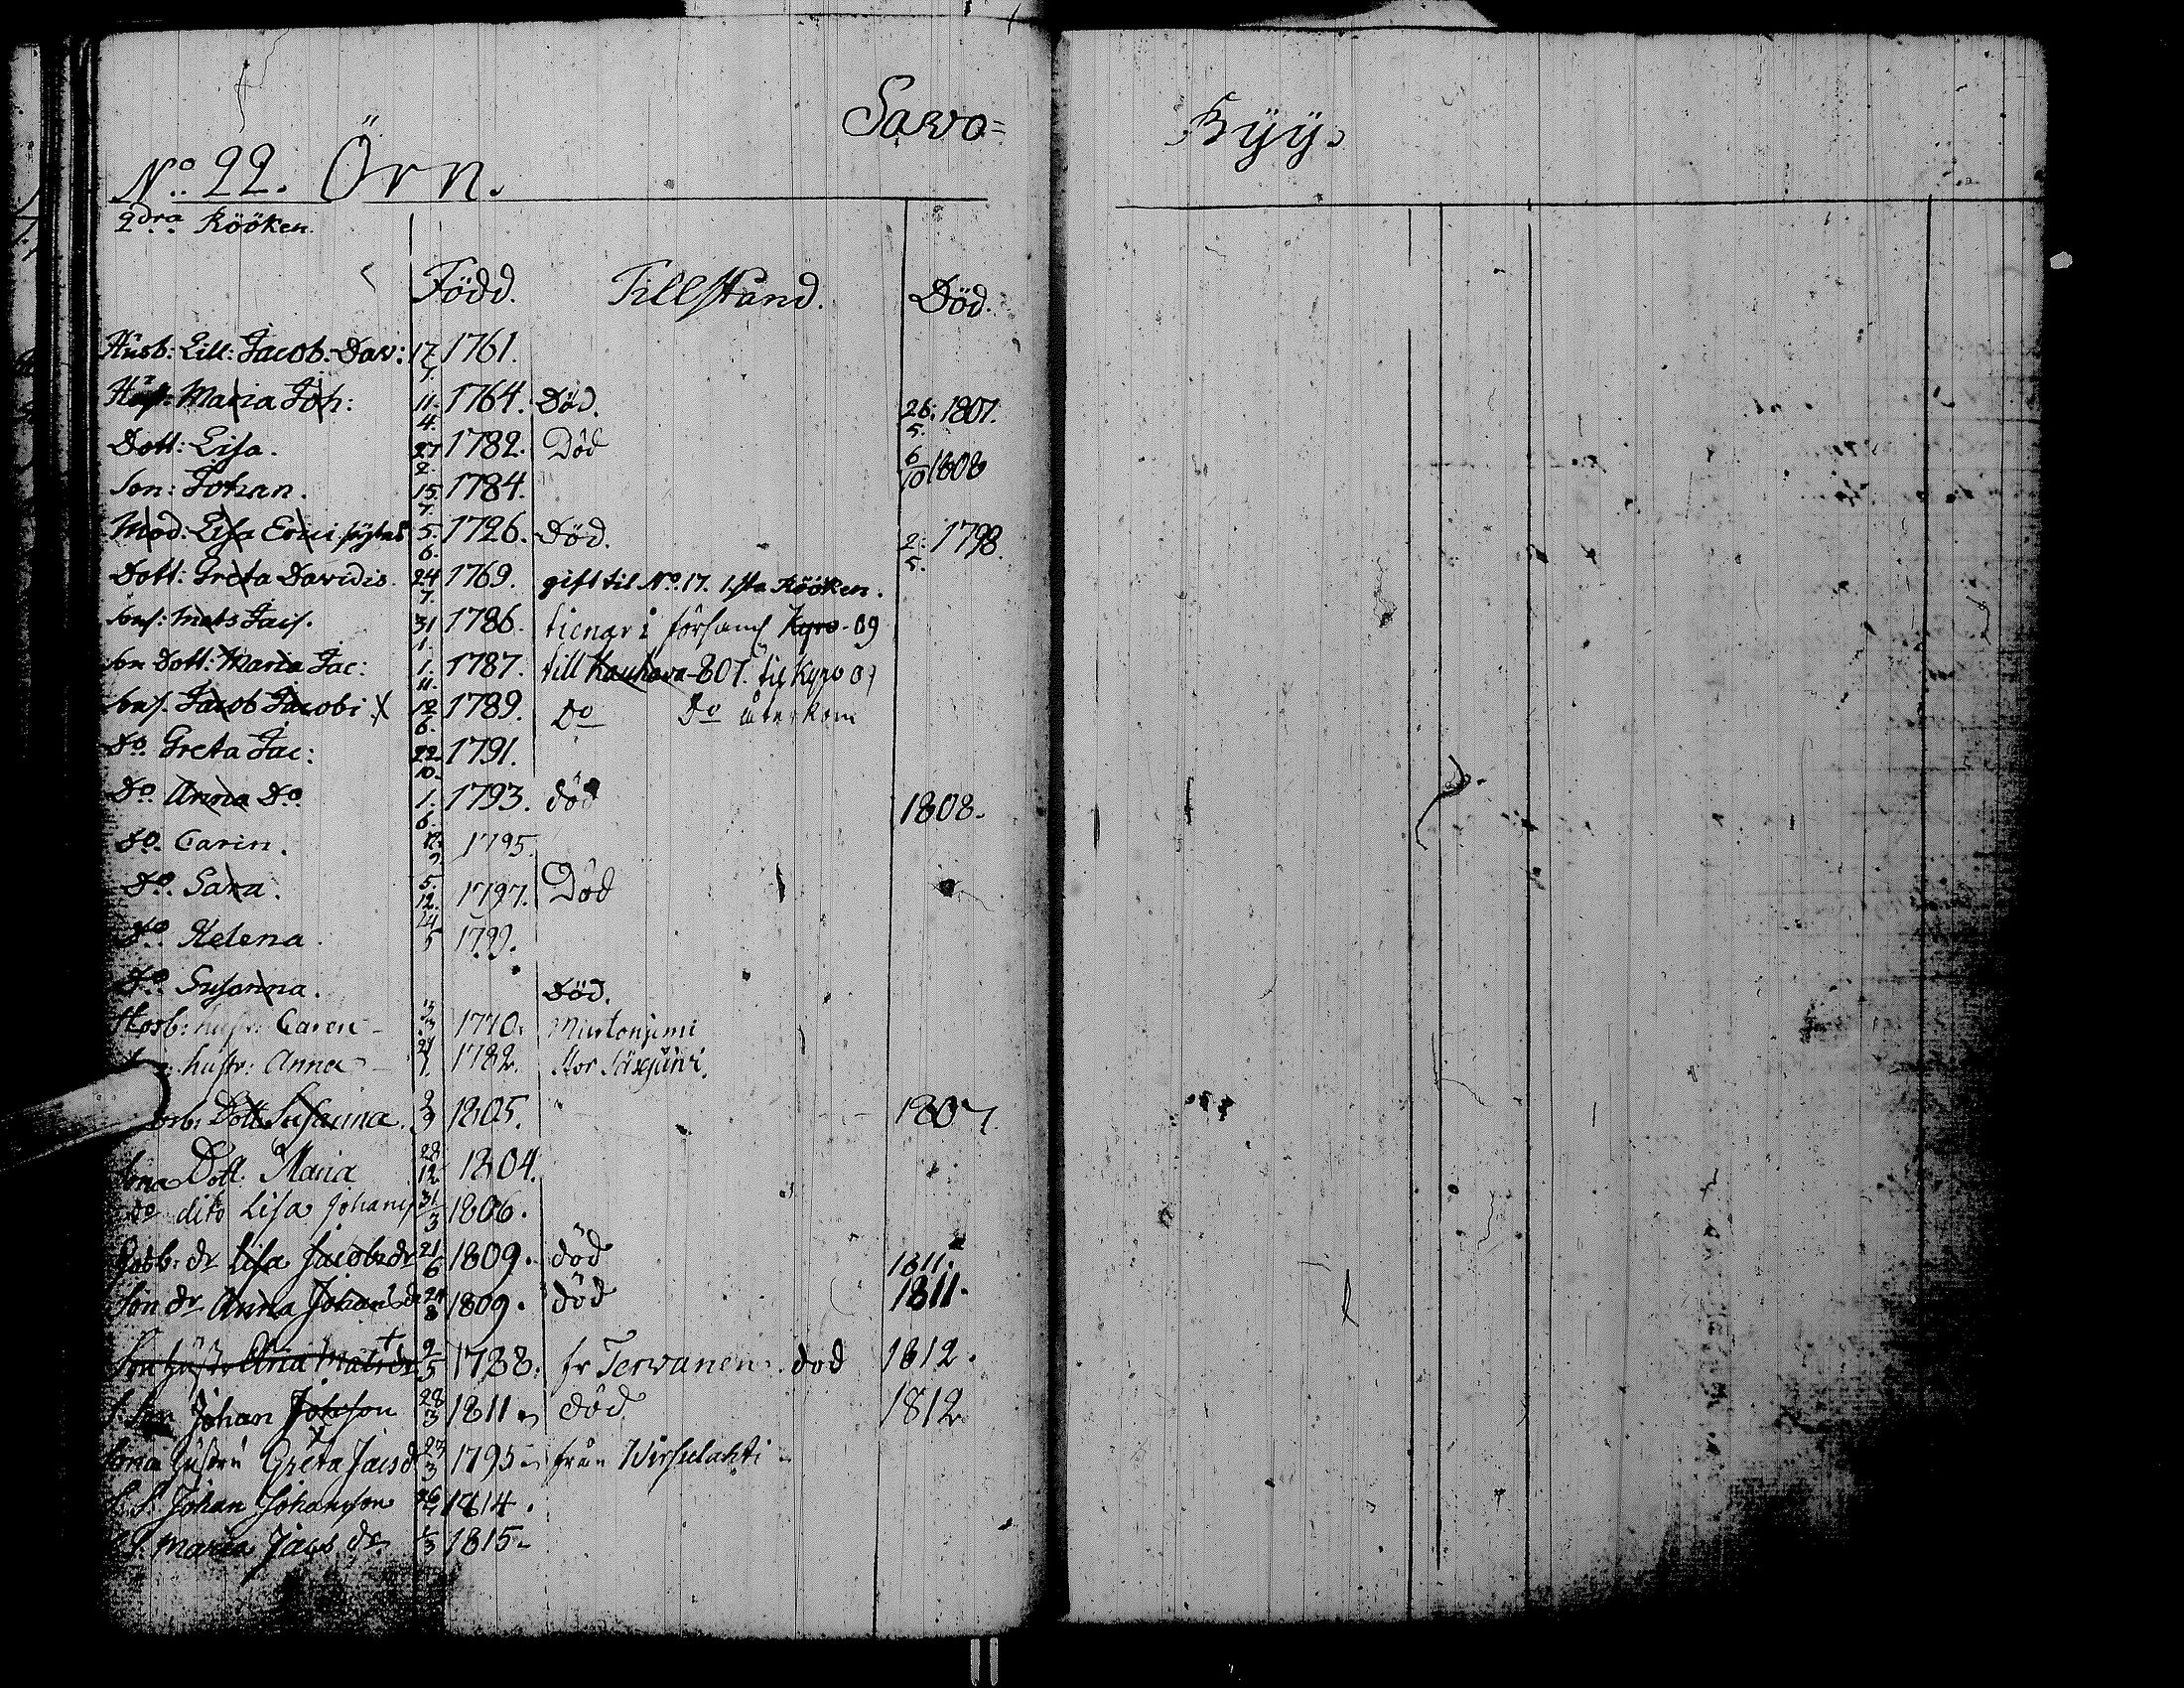 Sawo= Kyÿ.
No. 22. Örn.
2dra Rööken.
Född. Tillstånd. Död.
Husb: Lill: Jacob Dav: 17/7. 1761.
Hust: Maria Joh: 11/4. 1764. Död. 26/5. 1807.
Dott: Lisa. 27/2. 1782. Död 6/10 1808
Son: Johan. 15/7. 1784.
Mod: Lisa Erici 5/6. 1726. Död. 2/5. 1798.
Dott: Greta Davidis. 24/7. 1769. gift til No. 17. 1sta Rööken.
Sons: Mats Jacs. 31/1. 1786. tienar i församl Kyro-09
Dott: Maria Jac: 1/11. 1787. till Kauhava-807. til Kyro 09
Sons. Jacob Jacobi X 12/6. 1789. Do Do återkom
Do. Greta Jac: 22/10. 1791.
Do. Anna Do. 1/6. 1793. död 1808.
Do. Carin. 1795.
Do. Sara. 5/12. 1797. Död
Do. Helena. 14/5 1799.
Do. Susanna. Död.
Hosb: hustr: Caren 1770. Mustoniemi
hustr: Anna 21/1. 1782. Stor
Dott Susanna. 1805. 1807.
Sona Dott. Maria 28/12 1804.
do dito Lisa Johans 31/3 1806.
Hosb: dr Lisa Jacobsdr 21/6 1809. död 1811.
Son dr Anna Johansdr 24/8 1809. död 1811.
Son hustr Ana Matsdr 9/5 1788. fr Tervanen. död 1812.
S: Son Johan Johsson 28/3 1811. död 1812
Sona hustru Greta Jacsd 23/3 1795 från Wirsulahti
S. S. Johan Johansson 1814.
Maria Jacs dr 1/3 1815.